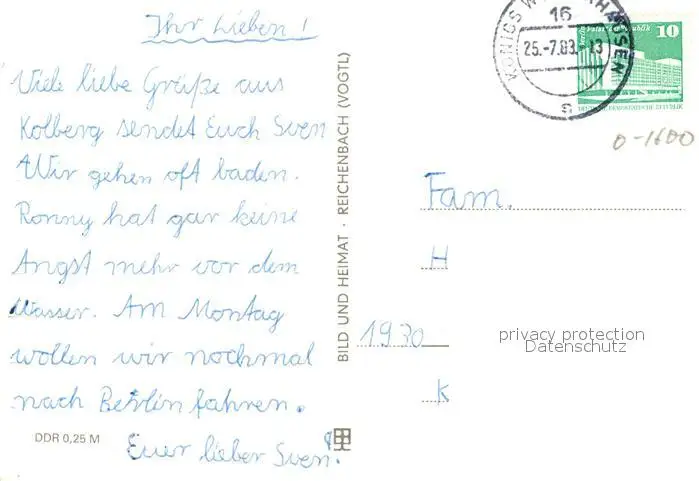 Ihr Lieben!
Viele liebe Grüße aus
Kolberg sendet Euch Sven
Wir gehen oft baden.
Ronny hat gar keine
Angst mehr vor dem
Wasser. Am Montag
wollen wir nochmal
nach Berlin fahren.
Euer lieber Sven.
DDR 0,25 M
BILD UND HEIMAT · REICHENBACH (VOGTL)
KÖNIGS WUSTERHAUSEN
16
25.-7.83.-13
Berlin, Palast der Republik
10
0-1600
Fam.
H
1930
K
privacy protection
Datenschutz